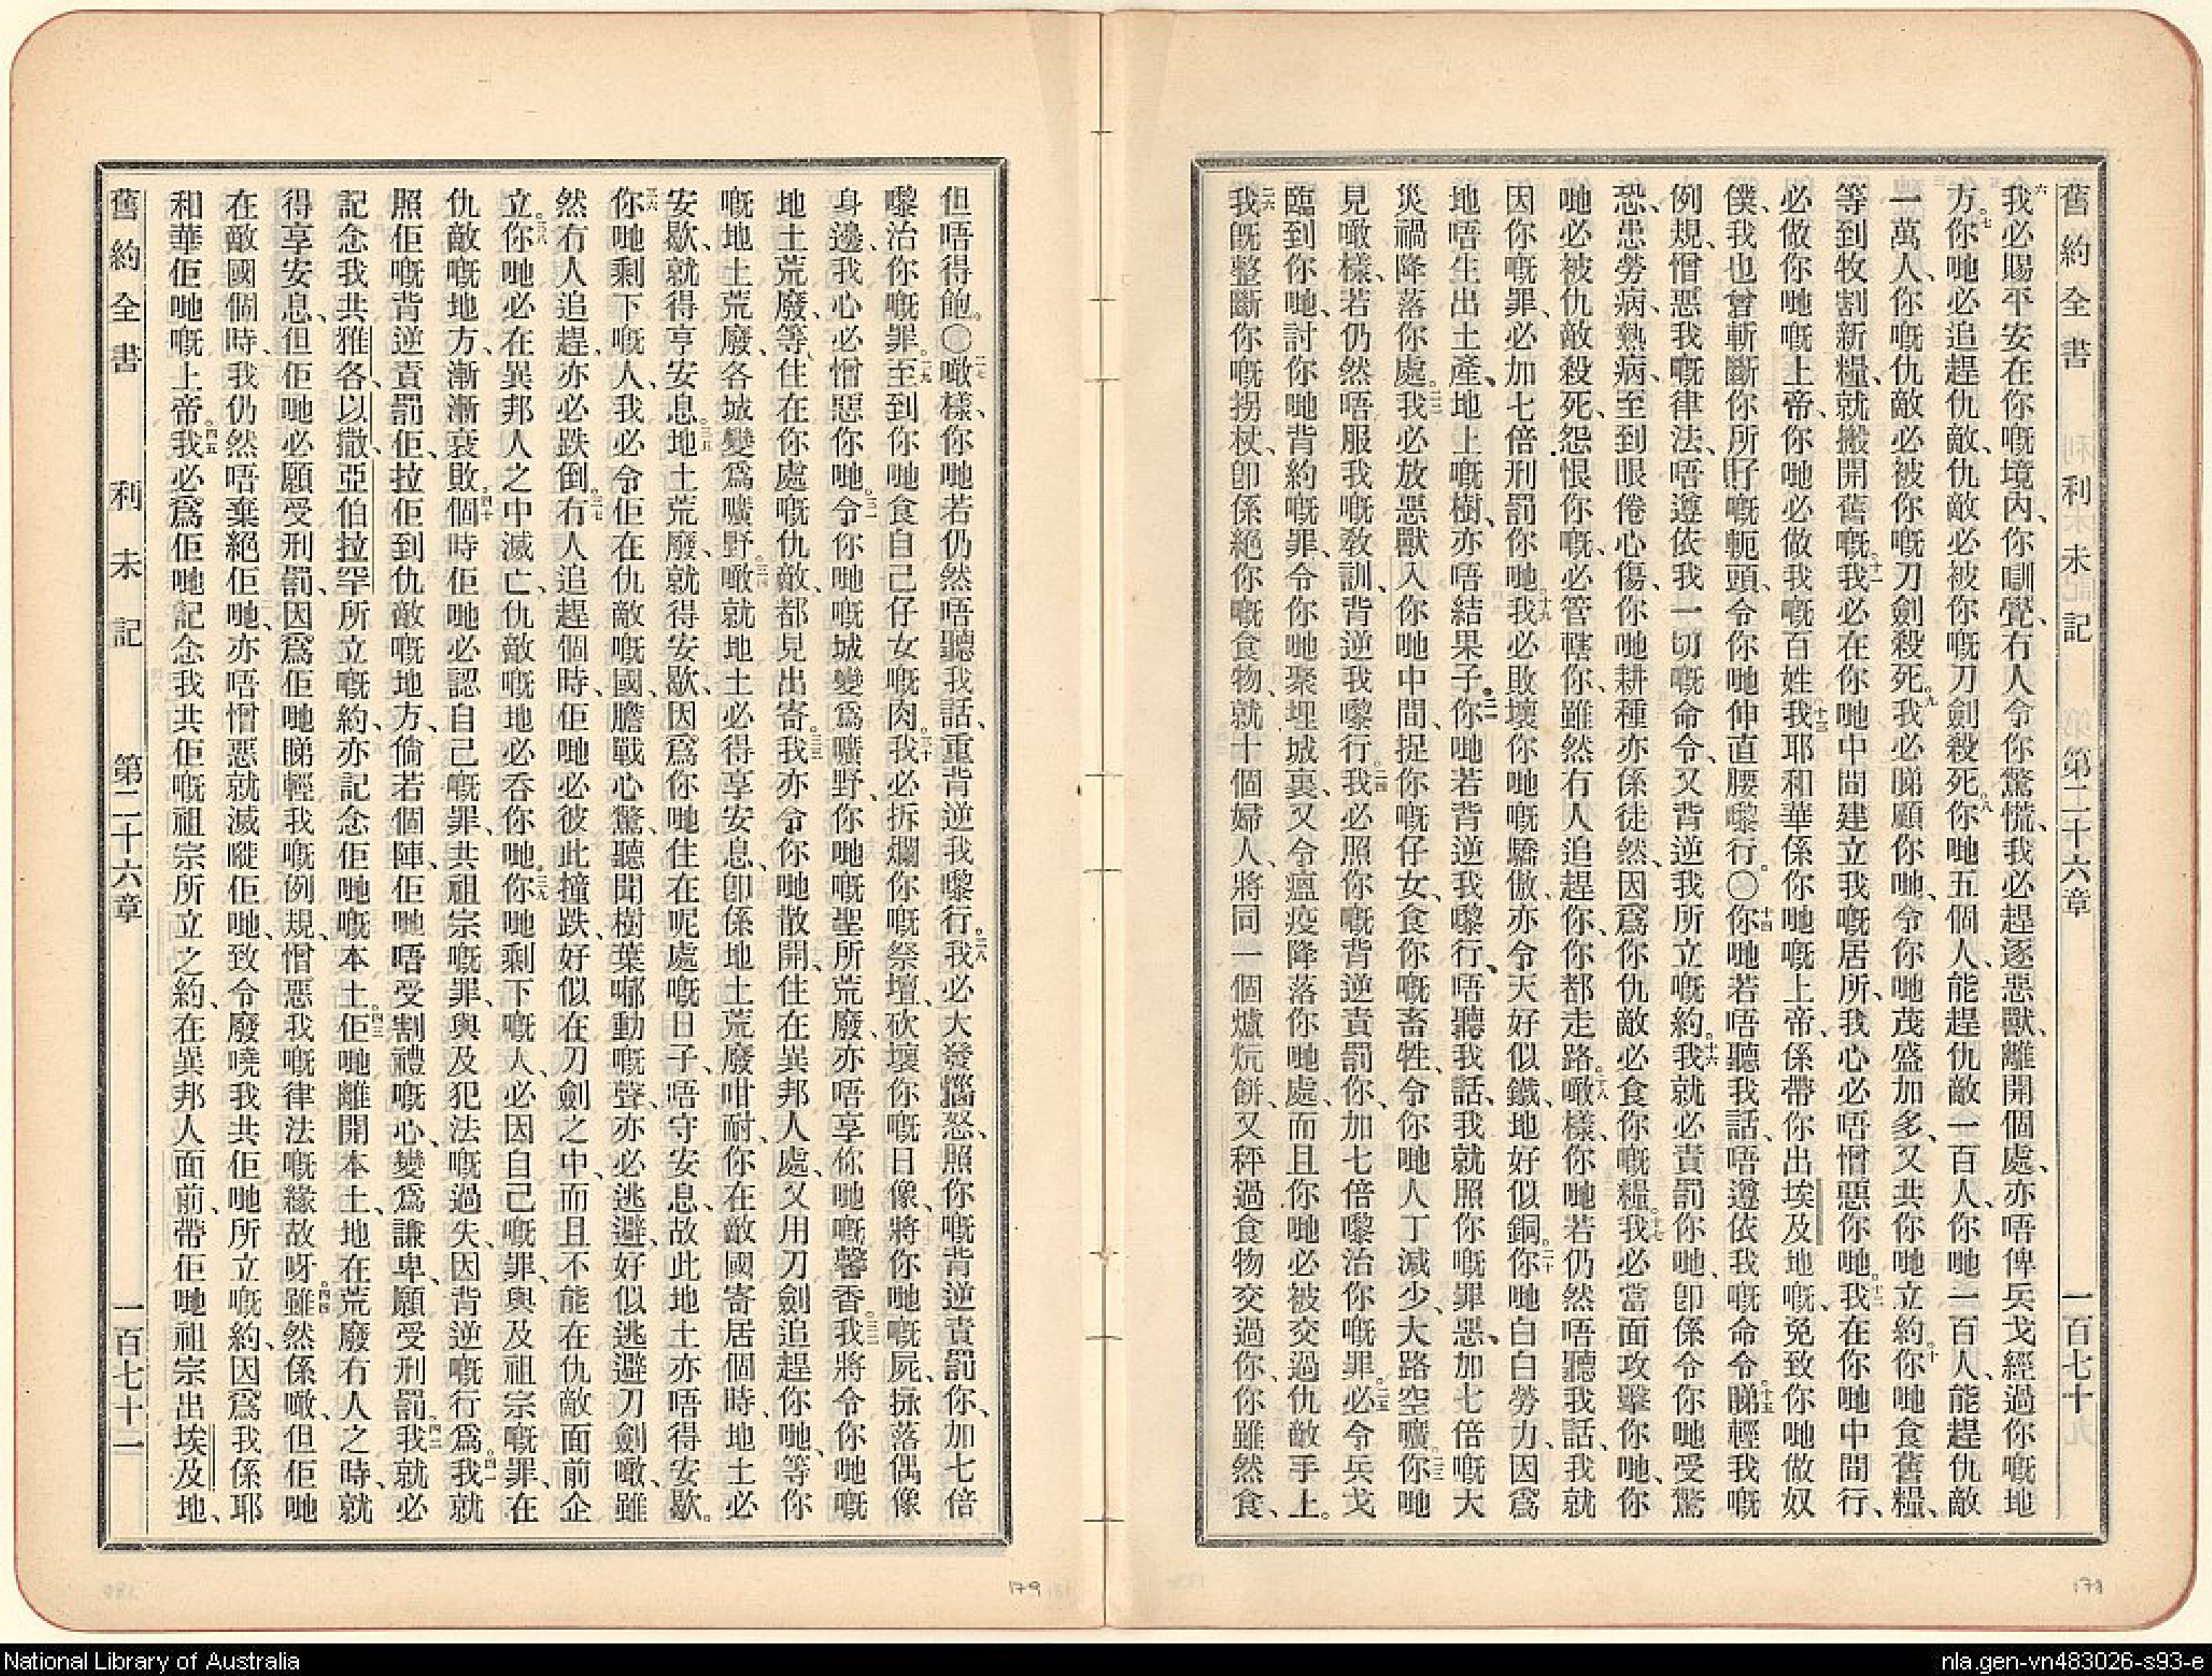 舊約全書 利未記 第二十六章 一百七十
六我必賜平安在你嘅境內、你瞓覺、冇人令你驚慌、我必趕逐惡獸、離開個處、亦唔俾兵戈經過你嘅地
方。七你哋必追趕仇敵、仇敵必被你嘅刀劍殺死。八你哋五個人、能趕仇敵一百人、你哋一百人、能趕仇敵
一萬人、你嘅仇敵必被你嘅刀劍殺死。九我必睇顧你哋、令你哋茂盛加多、又共你哋立約。十你哋食舊糧、
等到收割新糧、就搬開舊嘅。十一我必在你哋中間建立我嘅居所、我心必唔憎惡你哋。十二我在你哋中間行、
必做你哋嘅上帝、你哋必做我嘅百姓。十三我耶和華係你哋嘅上帝、係帶你出埃及地嘅、免致你哋做奴
僕、我也曾斬斷你所孖嘅軛頭、令你哋伸直腰嚟行。〇十四你哋若唔聽我話、唔遵依我嘅命令。十五睇輕我嘅
例規、憎惡我嘅律法、唔遵依我一切嘅命令、又背逆我所立嘅約。十六我就必責罰你哋、卽係令你哋受驚
恐、患勞病、熱病、至到眼倦心傷、你哋耕種亦係徒然、因爲你仇敵必食你嘅糧。十七我必當面攻擊你哋、你
哋必被仇敵殺死、怨恨你嘅、必管轄你、雖然有人追趕你、你都走路。十八噉樣、你哋若仍然唔聽我話、我就
因你嘅罪、必加七倍刑罰你哋。十九我必敗壞你哋嘅驕傲、亦令天好似鐵、地好似銅。二十你哋白白勞力、因爲
地唔生出土產、地上嘅樹、亦唔結果子。二一你哋若背逆我嚟行、唔聽我話、我就照你嘅罪惡、加七倍嘅大
災禍降落你處。二二我必放惡獸入你哋中間、捉你嘅仔女、食你嘅畜牲、令你哋人丁減少、大路空曠。二三你哋
見噉樣、若仍然唔服我嘅敎訓、背逆我嚟行。二四我必照你嘅背逆責罰你、加七倍嚟治你嘅罪。二五必令兵戈
臨到你哋、討你哋背約嘅罪、令你哋聚埋城裏、又令瘟疫降落你哋處、而且你哋必被交過仇敵手上。
二六我旣整斷你嘅拐杖、卽係絕你嘅食物、就十個婦人、將同一個爐炕餅、又秤過食物交過你、你雖然食、
但唔得飽。〇二七噉樣、你哋若仍然唔聽我話、重背逆我嚟行。二八我必大發惱怒、照你嘅背逆責罰你、加七倍
嚟治你嘅罪。二九至到你哋食自己仔女嘅肉。三十我必拆爛你嘅祭壇、砍壞你嘅日像、將你哋嘅屍、揼落偶像
身邊、我心必憎惡你哋。三一令你哋嘅城變爲曠野、你哋嘅聖所荒廢、亦唔享你哋嘅馨香。三二我將令你哋嘅
地土荒廢、等住在你處嘅仇敵、都見出奇。三三我亦令你哋散開、住在異邦人處、又用刀劍追趕你哋、等你
嘅地土荒廢、各城變爲曠野。三四噉就地土必得享安息、卽係地土荒廢咁耐、你在敵國寄居個時、地土必
安歇、就得享安息。三五地土荒廢、就得安歇、因爲你哋住在呢處嘅日子、唔守安息、故此地土亦唔得安歇。
三六你哋剩下嘅人、我必令佢在仇敵嘅國、膽戰心驚、聽聞樹葉郁動嘅聲、亦必逃避、好似逃避刀劍噉、雖
然冇人追趕、亦必跌倒。三七冇人追趕個時、佢哋必彼此撞跌、好似在刀劍之中、而且不能在仇敵面前企
立。三八你哋必在異邦人之中滅亡、仇敵嘅地必吞你哋。三九你哋剩下嘅人、必因自己嘅罪、與及祖宗嘅罪、在
仇敵嘅地方、漸漸衰敗。四十個時佢哋必認自己嘅罪、共祖宗嘅罪、與及犯法嘅過失、因背逆嘅行爲。四一我就
照佢嘅背逆責罰佢、拉佢到仇敵嘅地方、倘若個陣、佢哋唔受割禮嘅心、變爲謙卑、願受刑罰。四二我就必
記念我共雅各、以撒、亞伯拉罕所立嘅約、亦記念佢哋嘅本土。四三佢哋離開本土、地在荒廢冇人之時、就
得享安息、但佢哋必願受刑罰、因爲佢哋睇輕我嘅例規、憎惡我嘅律法嘅緣故呀。四四雖然係噉、但佢哋
在敵國個時、我仍然唔棄絕佢哋、亦唔憎惡就滅嘥佢哋、致令廢嘵我共佢哋所立嘅約、因爲我係耶
和華佢哋嘅上帝。四五我必爲佢哋記念我共佢嘅祖宗所立之約、在異邦人面前、帶佢哋祖宗出埃及地、
舊約全書 利未記 第二十六章 一百七十一
179
178
National Library of Australia
nla.gen-vn483026-s93-e